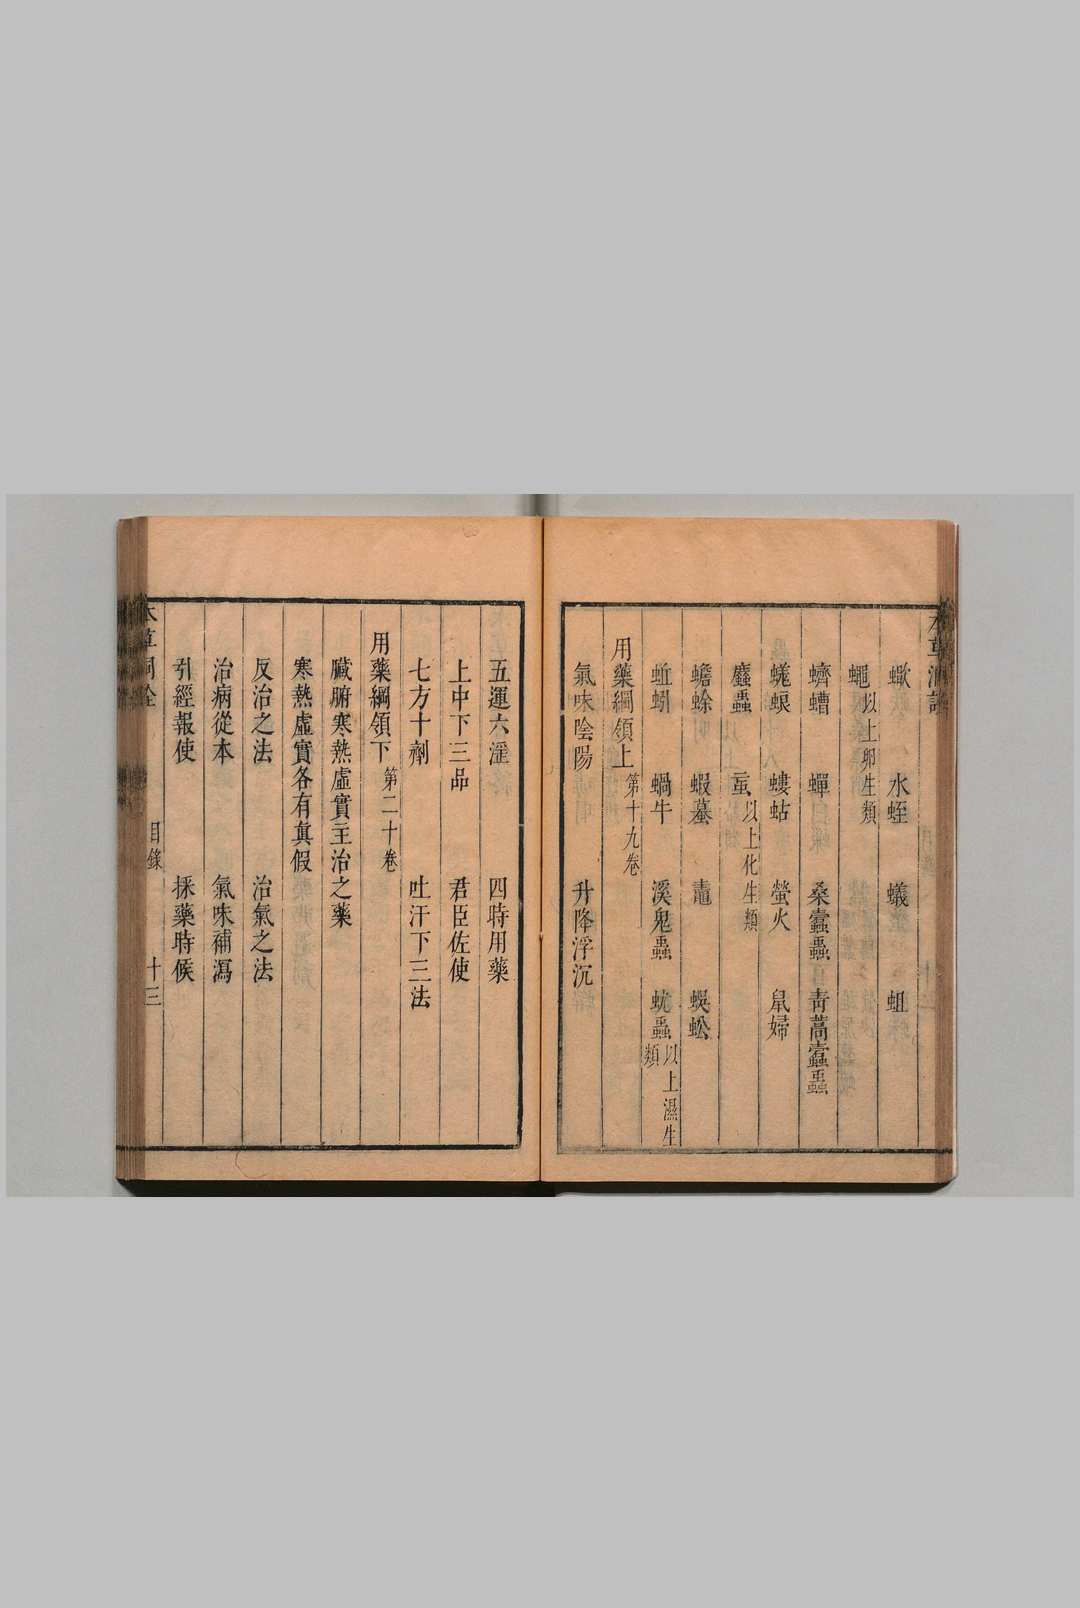 蠍　水蛭　蟻　蛆
蠅　以上卵生類
蠐螬　蟬　桑蠹蟲　青蒿蠹蟲
蜣蜋　螻蛄　螢火　鼠婦
䗪蟲　䖟　以上化生類
蟾蜍　蝦蟇　鼃　蜈蚣
蚯蚓　蝸牛　溪鬼蟲　蚘蟲　以上濕生類
用藥綱領上　第十九卷
氣味陰陽　升降浮沉
五運六淫　四時用藥
上中下三品　君臣佐使
七方十劑　吐汗下三法
用藥綱領下　第二十卷
臟腑寒熱虛實主治之藥
寒熱虛實各有真假
反治之法　治氣之法
治病從本　氣味補瀉
引經報使　採藥時候
本草洞詮　目錄　十三